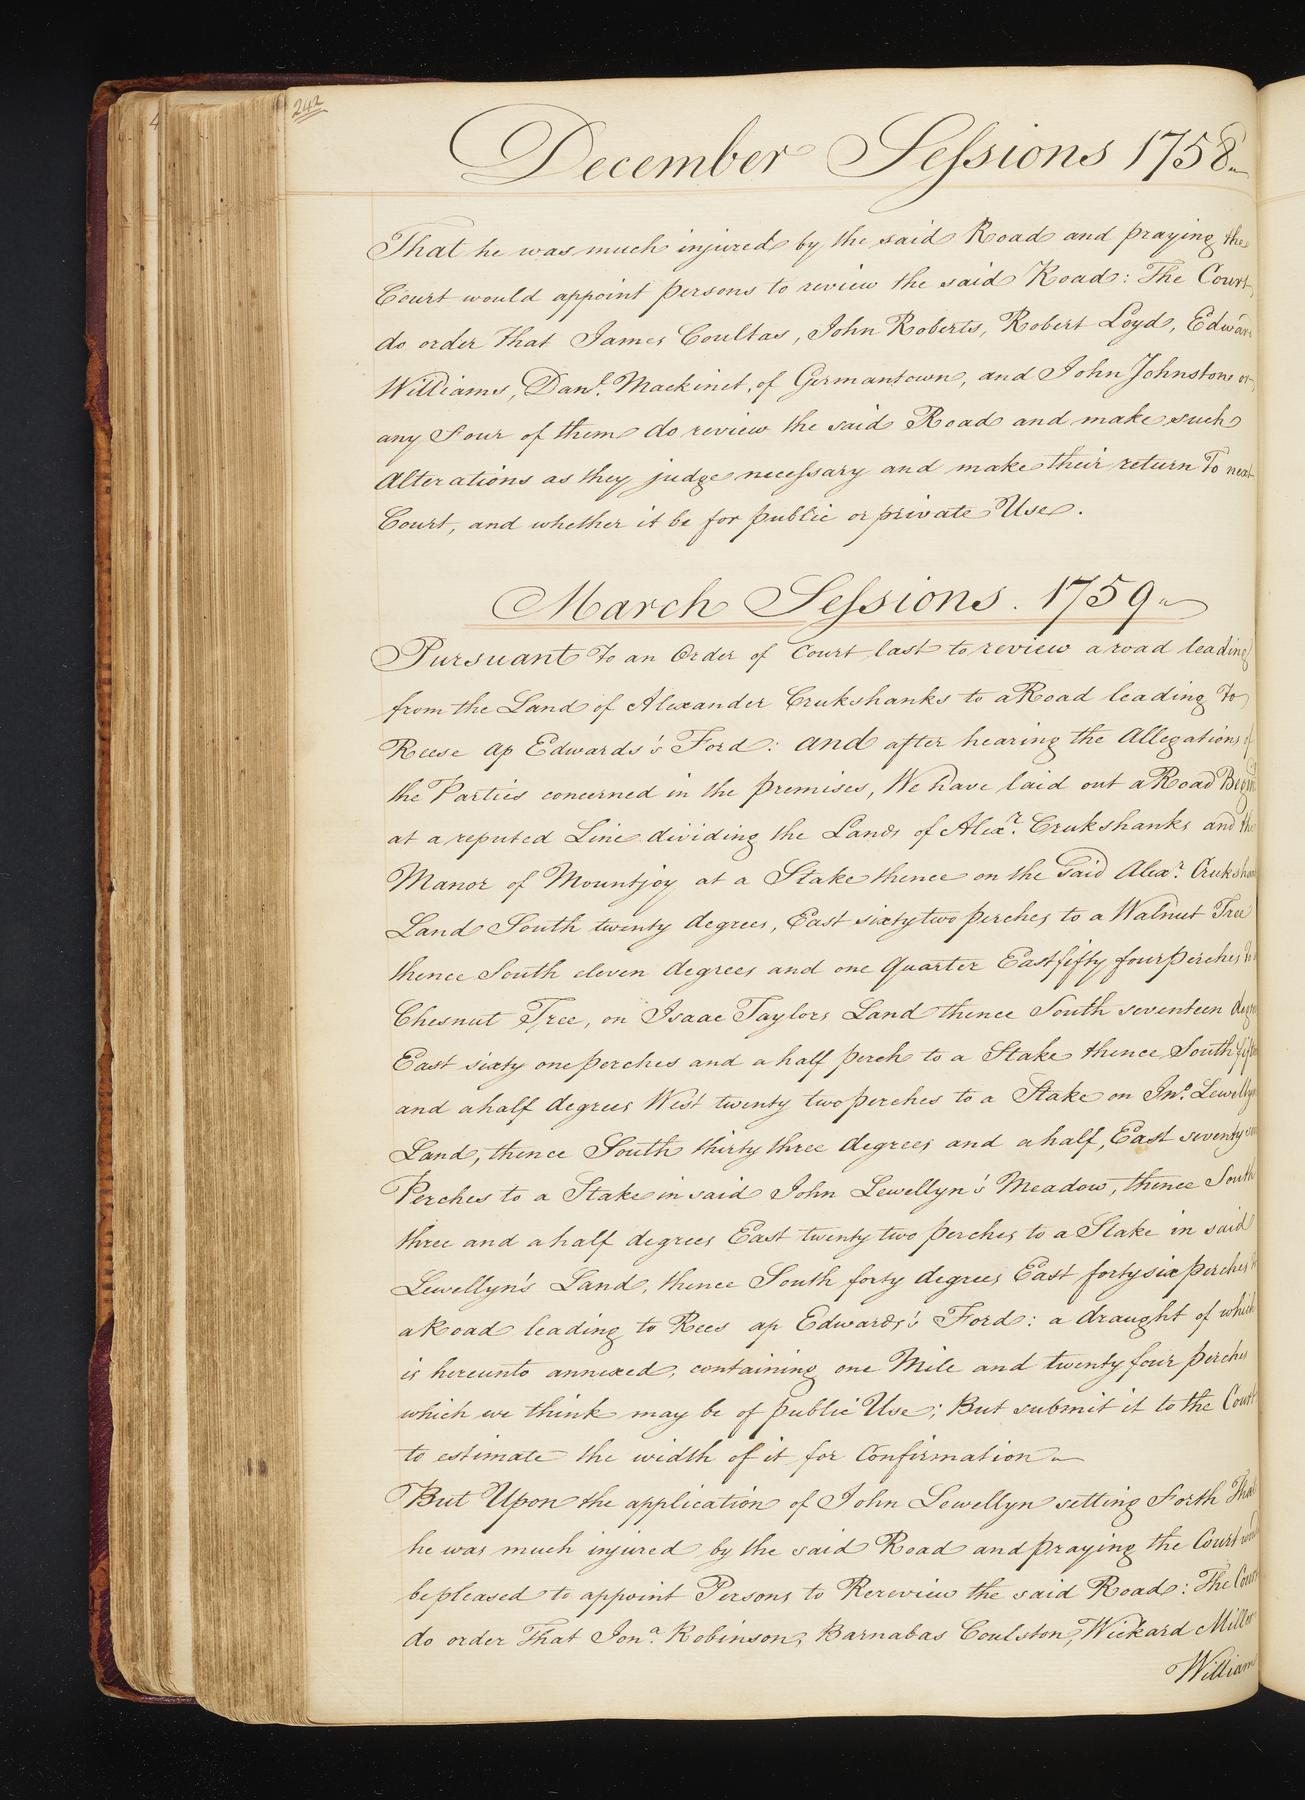 242
December Sessions 1758
That he was much injured by the said Road and praying the
Court would appoint persons to review the said Road: The Court,
do order that James Coultas, John Roberts, Robert Loyd,
Williams, Danl. Mackinet, of Germantown, and John Johnston or
any Four of them do review the said Road and make such
Alterations as they judge necessary and make their return To next
Court, and whether it be for public or private Use.
March Sessions. 1759
Pursuant to an Order of Court last to review a road leading
from the Land of Alexander Crukshanks to a Road leading To
Reese ap Edwards's Ford: and after hearing the Allegations of
the Parties concerned in the premises, We have laid out a Road
at a reputed Line dividing the Lands of Alexr. Crukshanks and the
Manor of Mountjoy at a Stake thence on the Said Alexr.
Land South twenty degrees, East sixty two perches to a Walnut Tree
thence South eleven degrees and one Quarter East fifty four perches
Chesnut Tree, on Isaac Taylors Land thence South seventeen
East sixty one perches and a half perch to a Stake thence South
and a half degrees West twenty two perches to a Stake on Jno.
Land, thence South thirty three degrees and a half, East
Perches to a Stake in said John Lewellyn's Meadow, thence South
three and a half degrees East twenty two perches to a Stake in said
Lewellyn's Land, thence South forty degrees East forty six perches
a Road leading to Rees ap Edwards's Ford: a draught of which
is hereunto annexed, containing one Mile and twenty four perches
which we think may be of public Use; But submit it to the Court
to estimate the width of it for Confirmation
But Upon the application of John Lewellyn setting Forth That
he was much injured by the said Road and praying the Court
be pleased to appoint Persons to Rereview the said Road: The Court
do order That Jona. Robinson, Barnabas Coulston, Wickard Miller
William